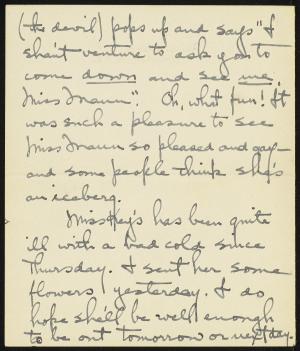 (the devil) pops up and says "I
shan't venture to ask you to
come down and see me,
Miss Mann". Oh, what fun! It
was such a pleasure to see
Miss Mann so pleased and gay—
and some people think she's
an iceberg.
Miss Keys has been quite
ill with a bad cold since
Thursday. I sent her some
flowers yesterday. I do
hope she'll be well enough
to be out tomorrow or next day.